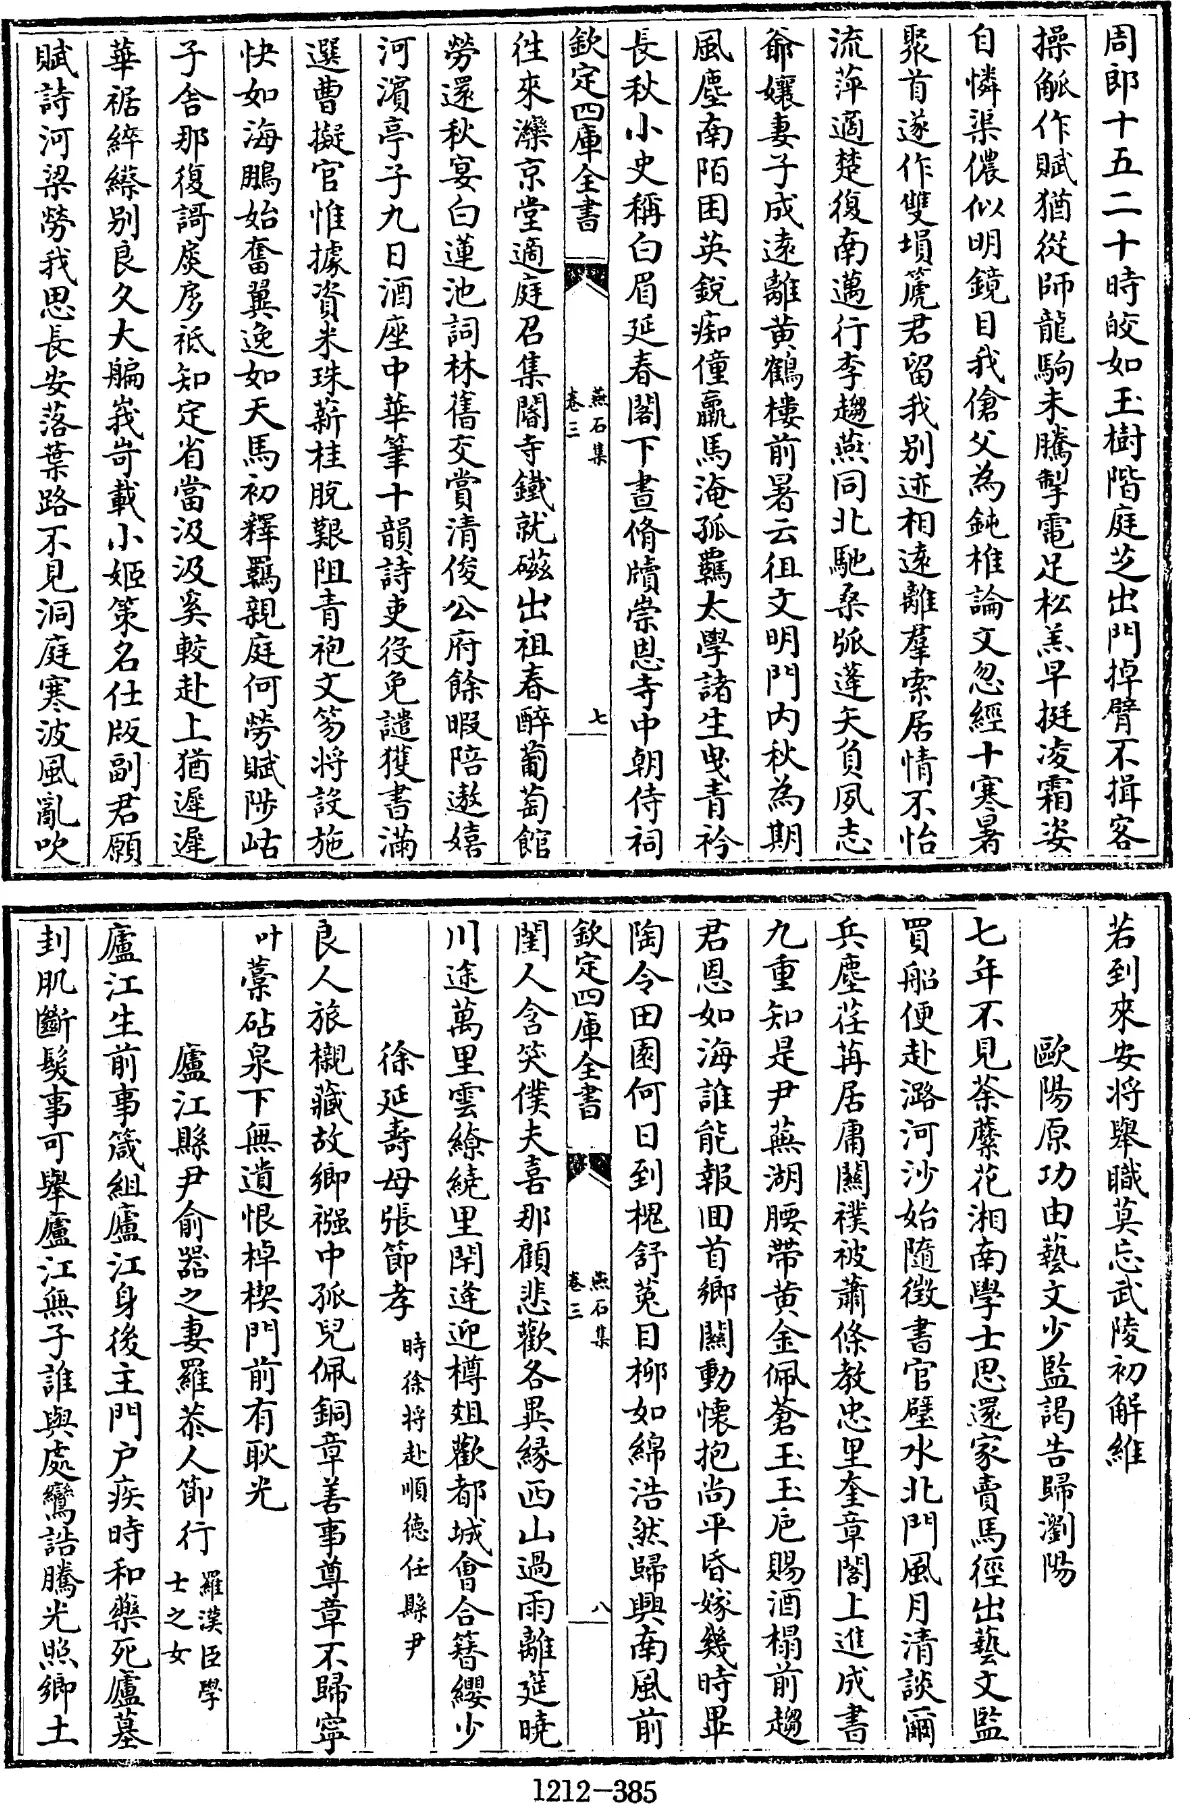 周郎十五二十時皎如玉樹階庭芝出門掉臂不揖客
操觚作賦猶從師龍駒未騰掣電足松羔早挺凌霜姿
自憐渠儂似明鏡目我傖父為鈍椎論文忽經十寒暑
聚首遂作雙塤篪君留我别迹相遠離羣索居情不怡
流萍適楚復南邁行李趨燕同北馳桑弧蓬矢負夙志
爺孃妻子成逺離黄鶴樓前暑云徂文明門内秋為期
風塵南陌困英鋭痴僮羸馬淹孤羈太學諸生曵青衿
長秋小史稱白眉延春閣下晝脩牘崇恩寺中朝侍祠
欽定四庫全書
燕石集
卷三
七
徃來灤京堂適庭召集閽寺鐵就磁出祖春醉葡萄館
勞還秋宴白蓮池詞林舊交賞清俊公府餘暇陪遨嬉
河濱亭子九日酒座中華筆十韻詩吏役免譴獲書滿
選曹擬官惟據資米珠薪桂脫艱阻青袍文笏将設施
快如海鵬始奮翼逸如天馬初釋羈親庭何勞賦陟岵
子舍那復謌扊扅祗知定省當汲汲奚較赴上猶遲遲
華裾綷縩别良久大艑峩岢載小姬策名仕版副君願
賦詩河梁勞我思長安落葉路不見洞庭寒波風亂吹
若到來安将舉職莫忘武陵初解維
歐陽原功由藝文少監謁告歸瀏陽
七年不見荼蘼花湘南學士思還家賣馬徑出藝文監
買船便赴潞河沙始隨徴書官璧水北門風月清談爾
兵塵荏苒居庸關襆被蕭條教忠里奎章閣上進成書
九重知是尹蕪湖腰帶黄金佩蒼玉玉巵賜酒榻前趨
君恩如海誰能報回首鄉關動懷抱尚平昏嫁幾時畢
陶令田園何日到槐舒莵目柳如綿浩然歸興南風前
欽定四庫全書
燕石集
卷三
八
閨人含笑僕夫喜那顧悲歡各異縁西山過雨離筵曉
川途萬里雲繚繞里閈逢迎樽爼歡都城㑹合簪纓少
徐延夀母張節孝時徐将赴順徳任縣尹
良人旅櫬藏故鄉襁中孤兒佩銅章善事尊章不歸寧
叶藁砧泉下無遺恨棹楔門前有耿光
廬江縣尹俞器之妻羅恭人節行羅漢臣學
士之女
廬江生前事箴組廬江身後主門户疾時和藥死廬墓
刲肌斷髪事可舉廬江無子誰與處鸞誥騰光照鄉土
1212-385